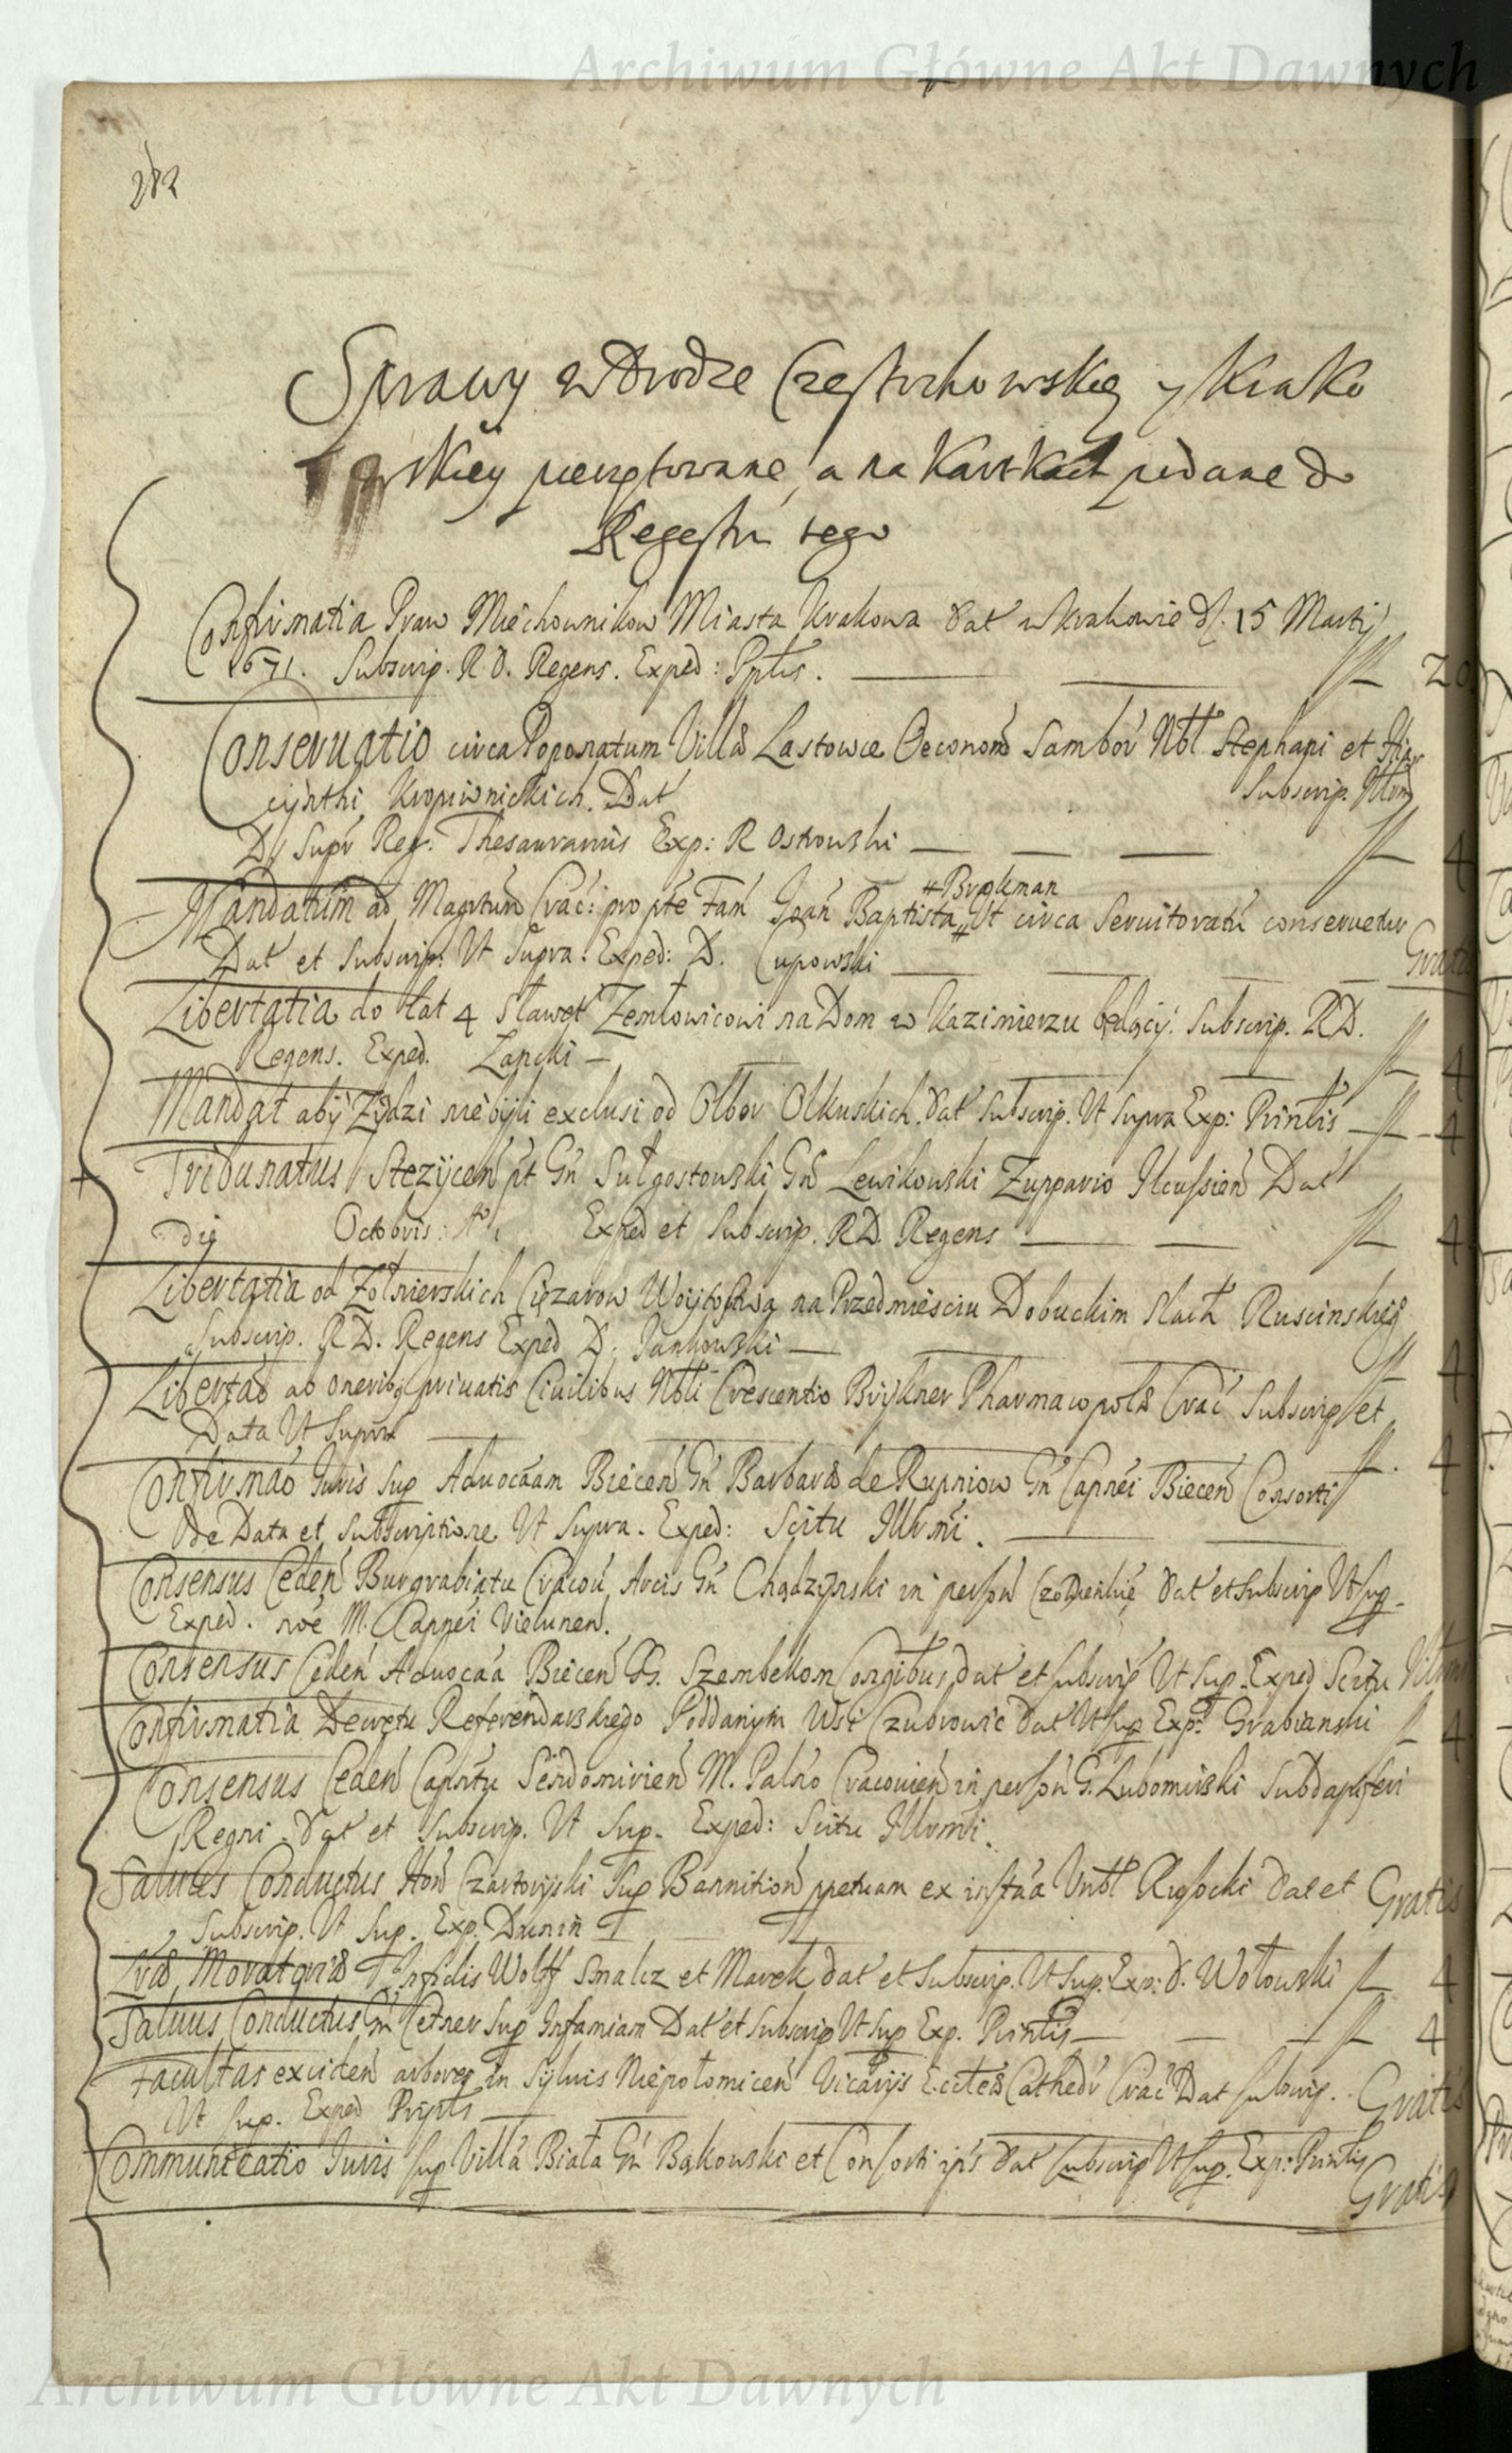 Archiwum Główne Akt Dawnych
282
Sprawy w drodze Częstochowskiey y Krako
wskiey pieczętowane, a na Kartkach podane do
Regestru tego
Confirmatia Praw Miechownikow Miasta Krakowa Dat w Krakowie d. 15 Martij
1671. Subscrip. R D. Regens. Exped: Pptis. fl 20
Conservatio circa Poponatum Villæ Lastowce Oeconom Sambor Nbl Stephani et Hia
cynthi Kropiwnickich. Dat Subscrip. Illmi
D. Supr Reg. Thesaurarius Exp: R Ostrowski fl 4
#Brokman
Mandatum ad Magrtum Crac: pro pte Fam Joan Baptista # Ut circa Servitoratu conservetur
Dat et Subscrip. Ut Supra. Exped: D. Cupowski Gratis
Libertatia do lat 4 Sławet Zemłowicowi na Dom w Kazimierzu będący. Subscrip. RD.
Regens. Exped. Lancki fl 4
Mandat aby Zydzi nie byli exclusi od Olbor Olkuskich. Dat Subscrip. Ut Supra Exp: Printis fl 4
Tribunatus Stezycen pt Gn Sułgostowski Gn Lewikowski Zuppario Ilcussien Dat
die Octobris: Exped et Subscrip. RD. Regens fl 4
Libertatia od Zołnierskich Ciężarow Woytostwa na Przedmiesciu Dobuckim Slach Ruscinskieg
Subscrip. RD. Regens Exped D. Jankowski fl 4
Libertao ab oneribq privatis Civilibus Nbli Crescentio Brykner Pharmacopolæ Crac Subscrip et
Data Ut Supra fl. 4
Confirmao Juris sup Advocaam Biecen Gn Barbaræ de Rupniow Gn Capnei Biecen Consorti
de Data et Subscriptione Ut Supra. Exped: Scitu Illmi.
Consensus Ceden Burgrabiatu Cracov Arcis Gn Chądzynski in person Dat et Subscrip Ut sup.
Exped. M. Capnei Vielunen.
Consensus Ceden Advocaa Biecen GG. Szembekom Dat et subscrip Ut Sup. Exped Scitu Illmi
Confirmatia Decretu Referendarskiego Poddanym Wsi Czubrowic Dat Ut Sup Exp: Grabianski fl 4
Consensus Ceden Capntu Sendomirien M. Palno Cracovien in person G. Lubomirski Subdapiferi
Regni. Dat et Subscrip. Ut Sup. Exped: Scitu Illmi.
Salvus Conductus Czartoryski Sup Bannition ppetuam ex instaa Rusocki Dat et Gratis
Subscrip. Ut Sup. Exp. Dunin
Lræ Moratoriæ Infidis Wolff Smalcz et Marek Dat et Subscrip. Ut Sup. Exp: D. Wołowski fl 4
Salvus Conductus Gn Cetner Sup Infamiam Dat et Subscrip Ut Sup Exp. Printis fl 4
Facultas exciden arbores in Sylvis Niepołomicen Vicariis Eccleæ Cathedr Crac Dat subscrip. Gratis
Ut Sup. Exped
Communicatio Juris sup Villa Biała Gn Bąkowski et Consorti ips Dat subscrip Ut sup. Exp: Printis
Gratis
Archiwum Główne Akt Dawnych